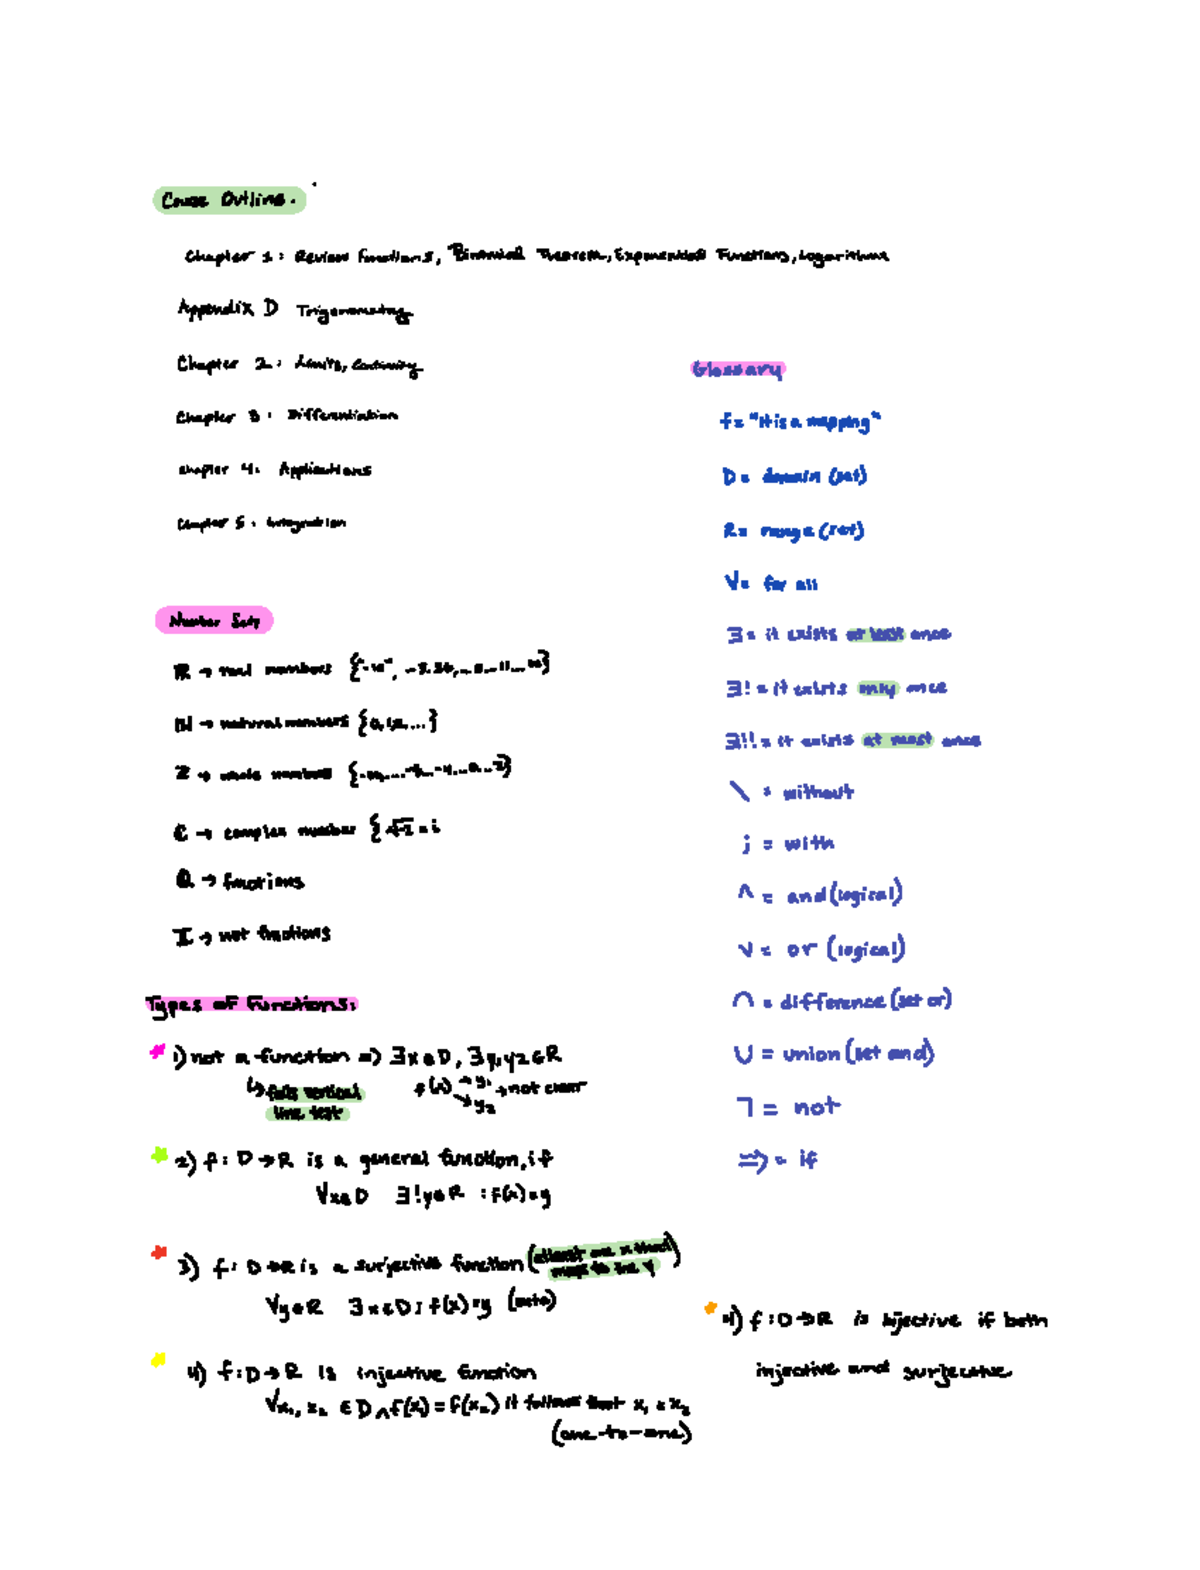 Course Outline.
Chapter 1: Review functions, Binomial Theorem, Exponential Functions, Logarithms
Appendix D Trigonometry
Chapter 2: Limits, Continuity
Chapter 3: Differentiation
Chapter 4: Applications
Chapter 5: Integration
Number Sets
R → real numbers
N → natural numbers {0,1,2,...}
Z → whole numbers
C → complex number {√-1 = i
Q → fractions
I → not fractions
Types of Functions:
1) not a function => ∃x∈D, ∃y₁,y₂∈R
↳ fails vertical line test
f(x) → y₁ → y₂ → not clear
2) f: D→R is a general function, if
∀x∈D ∃!y∈R : f(x)=y
3) f: D→R is a surjective function (atleast one x that maps to the y)
∀y∈R ∃x∈D; f(x)=y (onto)
4) f:D→R is injective function
∀x₁, x₂ ∈ D ∧ f(x₁) = f(x₂) it follows that x₁ = x₂
(one-to-one)
Glossary
f = "it is a mapping"
D = domain (set)
R = range (set)
∀= for all
∃ = it exists at least once
∃! = it exists only once
∃!! = it exists at most once
\ = without
; = with
^ = and (logical)
v = or (logical)
∩ = difference (set or)
U = union (set and)
¬ = not
=> = if
4) f:D→R is bijective if both
injective and surjective